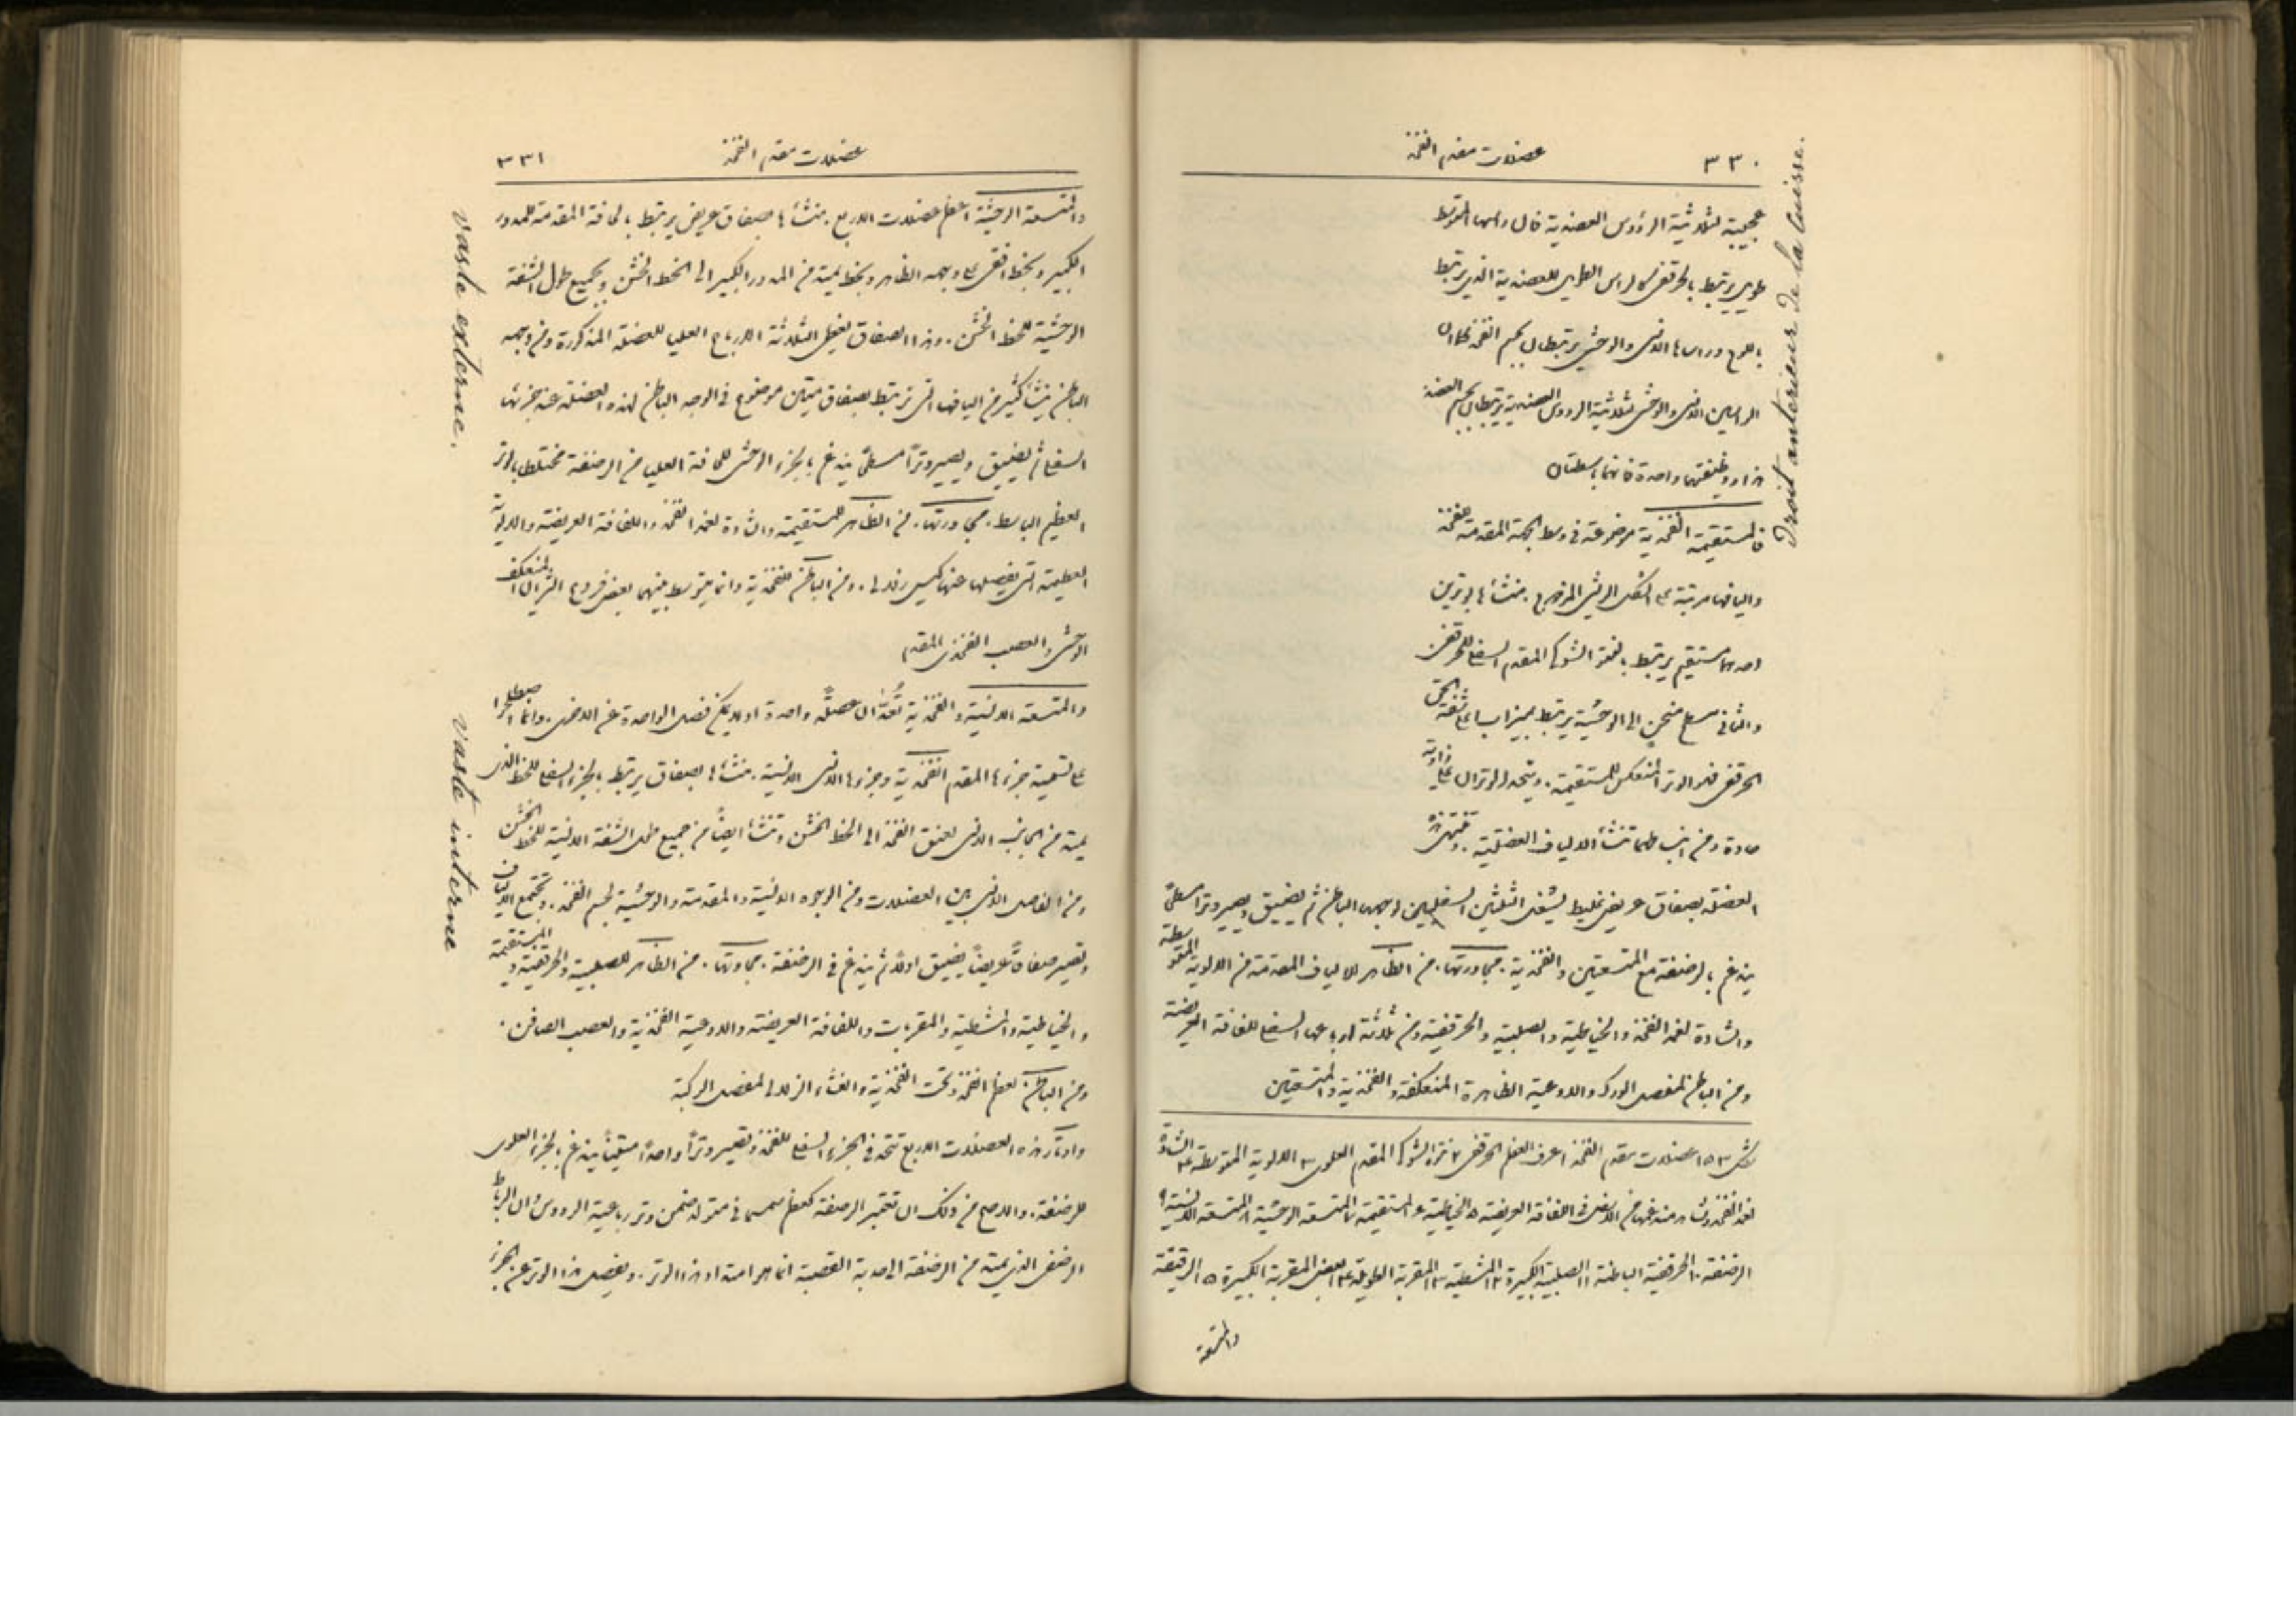 ٣٣٠
عضلات مقدم الفخذ
Droit anterieur de la Cuisse.
عجيبة لثلاثية الرؤوس العضدية فان راسها المتوسط
طويل يرتبط بالحرقفى كالراس الطويل للعضدية الذى يرتبط
باللوح وراساها الانسى والوحشى يرتبطان بجسم الفخذ كما ان
الراسين الانسى والوحشى لثلاثية الرووس العضدية يرتبطان بجسم العضد
هذا ووظيفتهما واحدة فانهما باسطتان
فالمستقيمة الفخذية موضوعة فى وسط الجهة المقدمة للفخذ
واليافها مرتبة على الشكل الريشى المزدوج . منشأها بوترين
احدهما مستقيم يرتبط بالشوك المقدم السفلى للحرقفى
والثانى مسطح منحن الى الوحشية يرتبط بميزاب على شفة الحق
الحرقفى فهو الوتر المنعكس للمستقيمة . ويتحد الوتران على زاوية
حادة ومن انضمامهما تنشأ الالياف العضلية . وتنتهى هذه
العضلة بصفاق عريض غليظ يشغل الثلثين السفليين لوجهها الباطن ثم يضيق ويصير وترا مسطحًا
يندغم بالرضفة مع المتسعتين والفخذية . مجاورتها . من الظاهر للالياف المقدمة من الالوية المتوسطة
والشادة لغمد الفخذ والخياطية والصلبية والحرقفية ومن ثلاثة ارباعها السفلى للفافة العريضة
ومن الباطن لمفصل الورك والاوعية الظاهرة المنعكفة والفخذية والمتسعتين
شكل ١٥٣ عضلات مقدم الفخذ ١ عرف العظم الحرقفى ٢ الشوك المقدم العلوى ٣ الالوية المتوسطة ٤ الشادة
لغمد الفخذ العريضة ٥ الخياطية ٦ المستقيمة ٧ المتسعة الوحشية ٨ المتسعة الانسية ٩
الرضفة ١٠ الحرقفية الباطنة ١١ الصلبية الكبيرة ١٢ المشطية ١٣ المقربة الطويلة ١٤ بعض المقربة الكبيرة ١٥ الرقيقة
والمتسعة
عضلات مقدم الفخذ
٣٣١
vaste externe.
والمتسعة الوحشية اعظم عضلات الاربع . منشأها صفاق عريض يرتبط بالحافة المقدمة للمدور
الكبير وبخط افقى على وجهه الظاهر وبخط يمتد من المدور الكبير الى الخط الخشن وبجميع طول الشفة
الوحشية للخط الخشن . وهذا الصفاق يغطى الثلاثة الارباع العليا للعضلة المذكورة ومن وجهه
الباطن ينشأ كثير من اليافها التى ترتبط بصفاق متين موضوع فى الوجه الباطن لهذه العضلة عند جزئها
السفلى ثم يضيق ويصير وترًا مسطحًا يندغم بالجزء الوحشى للحافة العليا من الرضفة مختلطا بالوتر
العظيم الباسط . مجاورتها . من الظاهر للمستقيمة والشادة لغمد الفخذ واللفافة العريضة والالوية
العظيمة التى يفصلها عنها كيس زلالى . ومن الباطن للفخذية وانما يتوسط بينهما بعض فروع الشريان المنعكف
الوحشى والعصب الفخذى المقدم
vaste interne
والمتسعة الانسية والفخذية تُعدّان عضلة واحدة اذ لا يمكن فصل الواحدة عن الاخرى . وانما اصطلحوا
على تسمية جزءها المقدم الفخذية وجزءها الانسى الانسية . منشأها بصفاق يرتبط بالجزء السفلى للخط الذى
يمتد من الجانب الانسى لعنق الفخذ الى الخط الخشن وتنشأ ايضًا من جميع طول الشفة الانسية للخط الخشن
ومن الفاصل الانسى بين العضلات ومن الوجوه الانسية والمقدمة والوحشية لجسم الفخذ . وتجتمع الالياف
وتصير صفاقًا عريضًا يضيق اولًا ثم يندغم فى الرضفة . مجاورتها . من الظاهر للصلبية والحرقفية والمستقيمة
والخياطية والمشطية والمقربات واللفافة العريضة والاوعية الفخذية والعصب الصافن .
ومن الباطن لعظم الفخذ وتحت الفخذية والغشاء الزلالى لمفصل الركبة
واوتار هذه العضلات الاربع تتحد فى الجزء السفلى للفخذ وتصير وترًا واحدًا متينًا يندغم بالجزء العلوى
للرضفة . والاصح من ذلك ان تعتبر الرضفة كعظم سمسمانى متولد ضمن وتر رباعية الرووس وان الرباط
الرضفى الذى يمتد من الرضفة الى حدبة القصبة انما هو امتداد هذا الوتر . ويفصل هذا الوتر عن الجزء